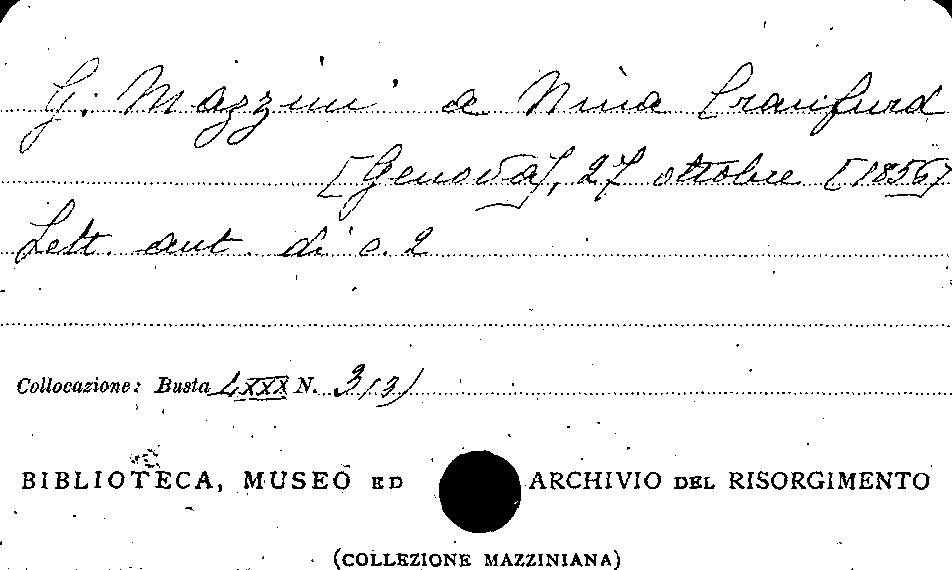 G. Mazzini a Nina Craufurd
[Genova], 27 ottobre [1856]
Lett. aut. di c. 2
Collocazione: Busta LXXX N. 3(3)
BIBLIOTECA, MUSEO ED ARCHIVIO DEL RISORGIMENTO
(COLLEZIONE MAZZINIANA)